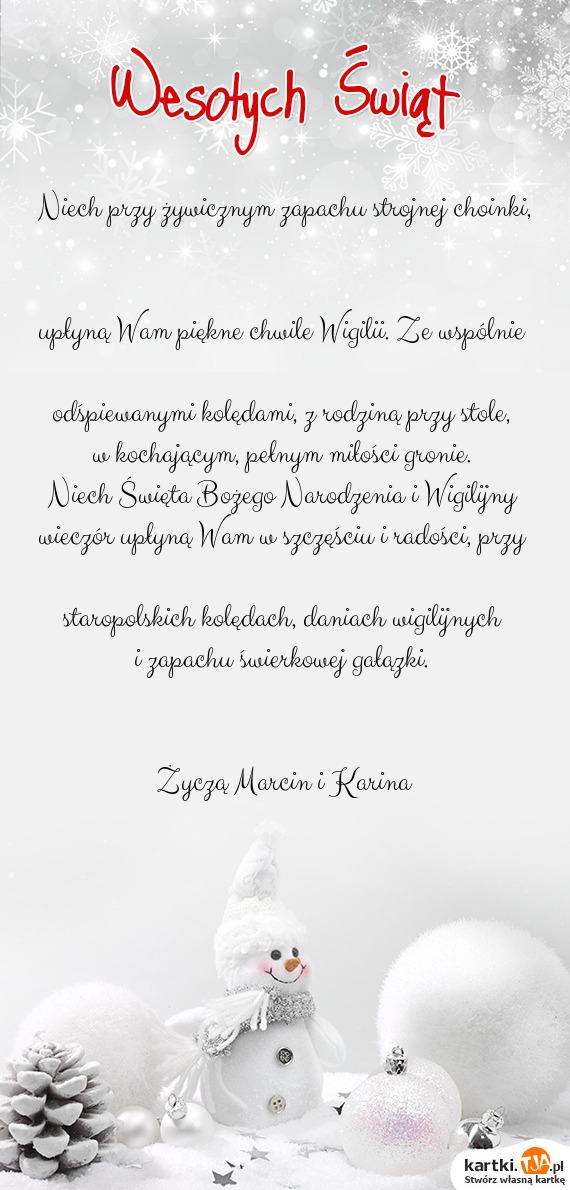 Wesołych Świąt
Niech przy żywicznym zapachu strojnej choinki,
upłyną Wam piękne chwile Wigilii. Ze wspólnie
odśpiewanymi kolędami, z rodziną przy stole,
w kochającym, pełnym miłości gronie.
Niech Święta Bożego Narodzenia i Wigilijny
wieczór upłyną Wam w szczęściu i radości, przy
staropolskich kolędach, daniach wigilijnych
i zapachu świerkowej gałązki.
Życzą Marcin i Karina
kartki.TJA.pl
Stwórz własną kartkę